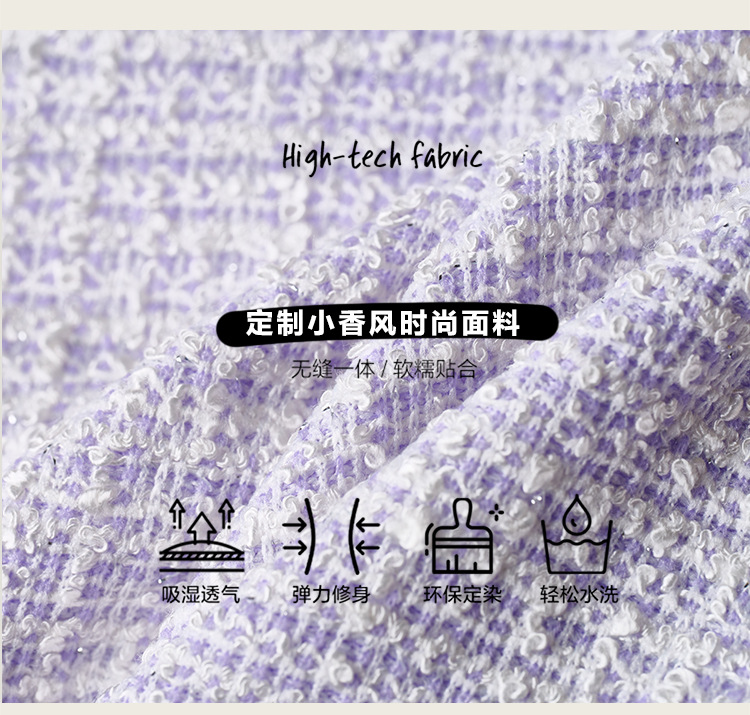 High-tech fabric
定制小香风时尚面料
无缝一体 / 软糯贴合
吸湿透气 弹力修身 环保定染 轻松水洗